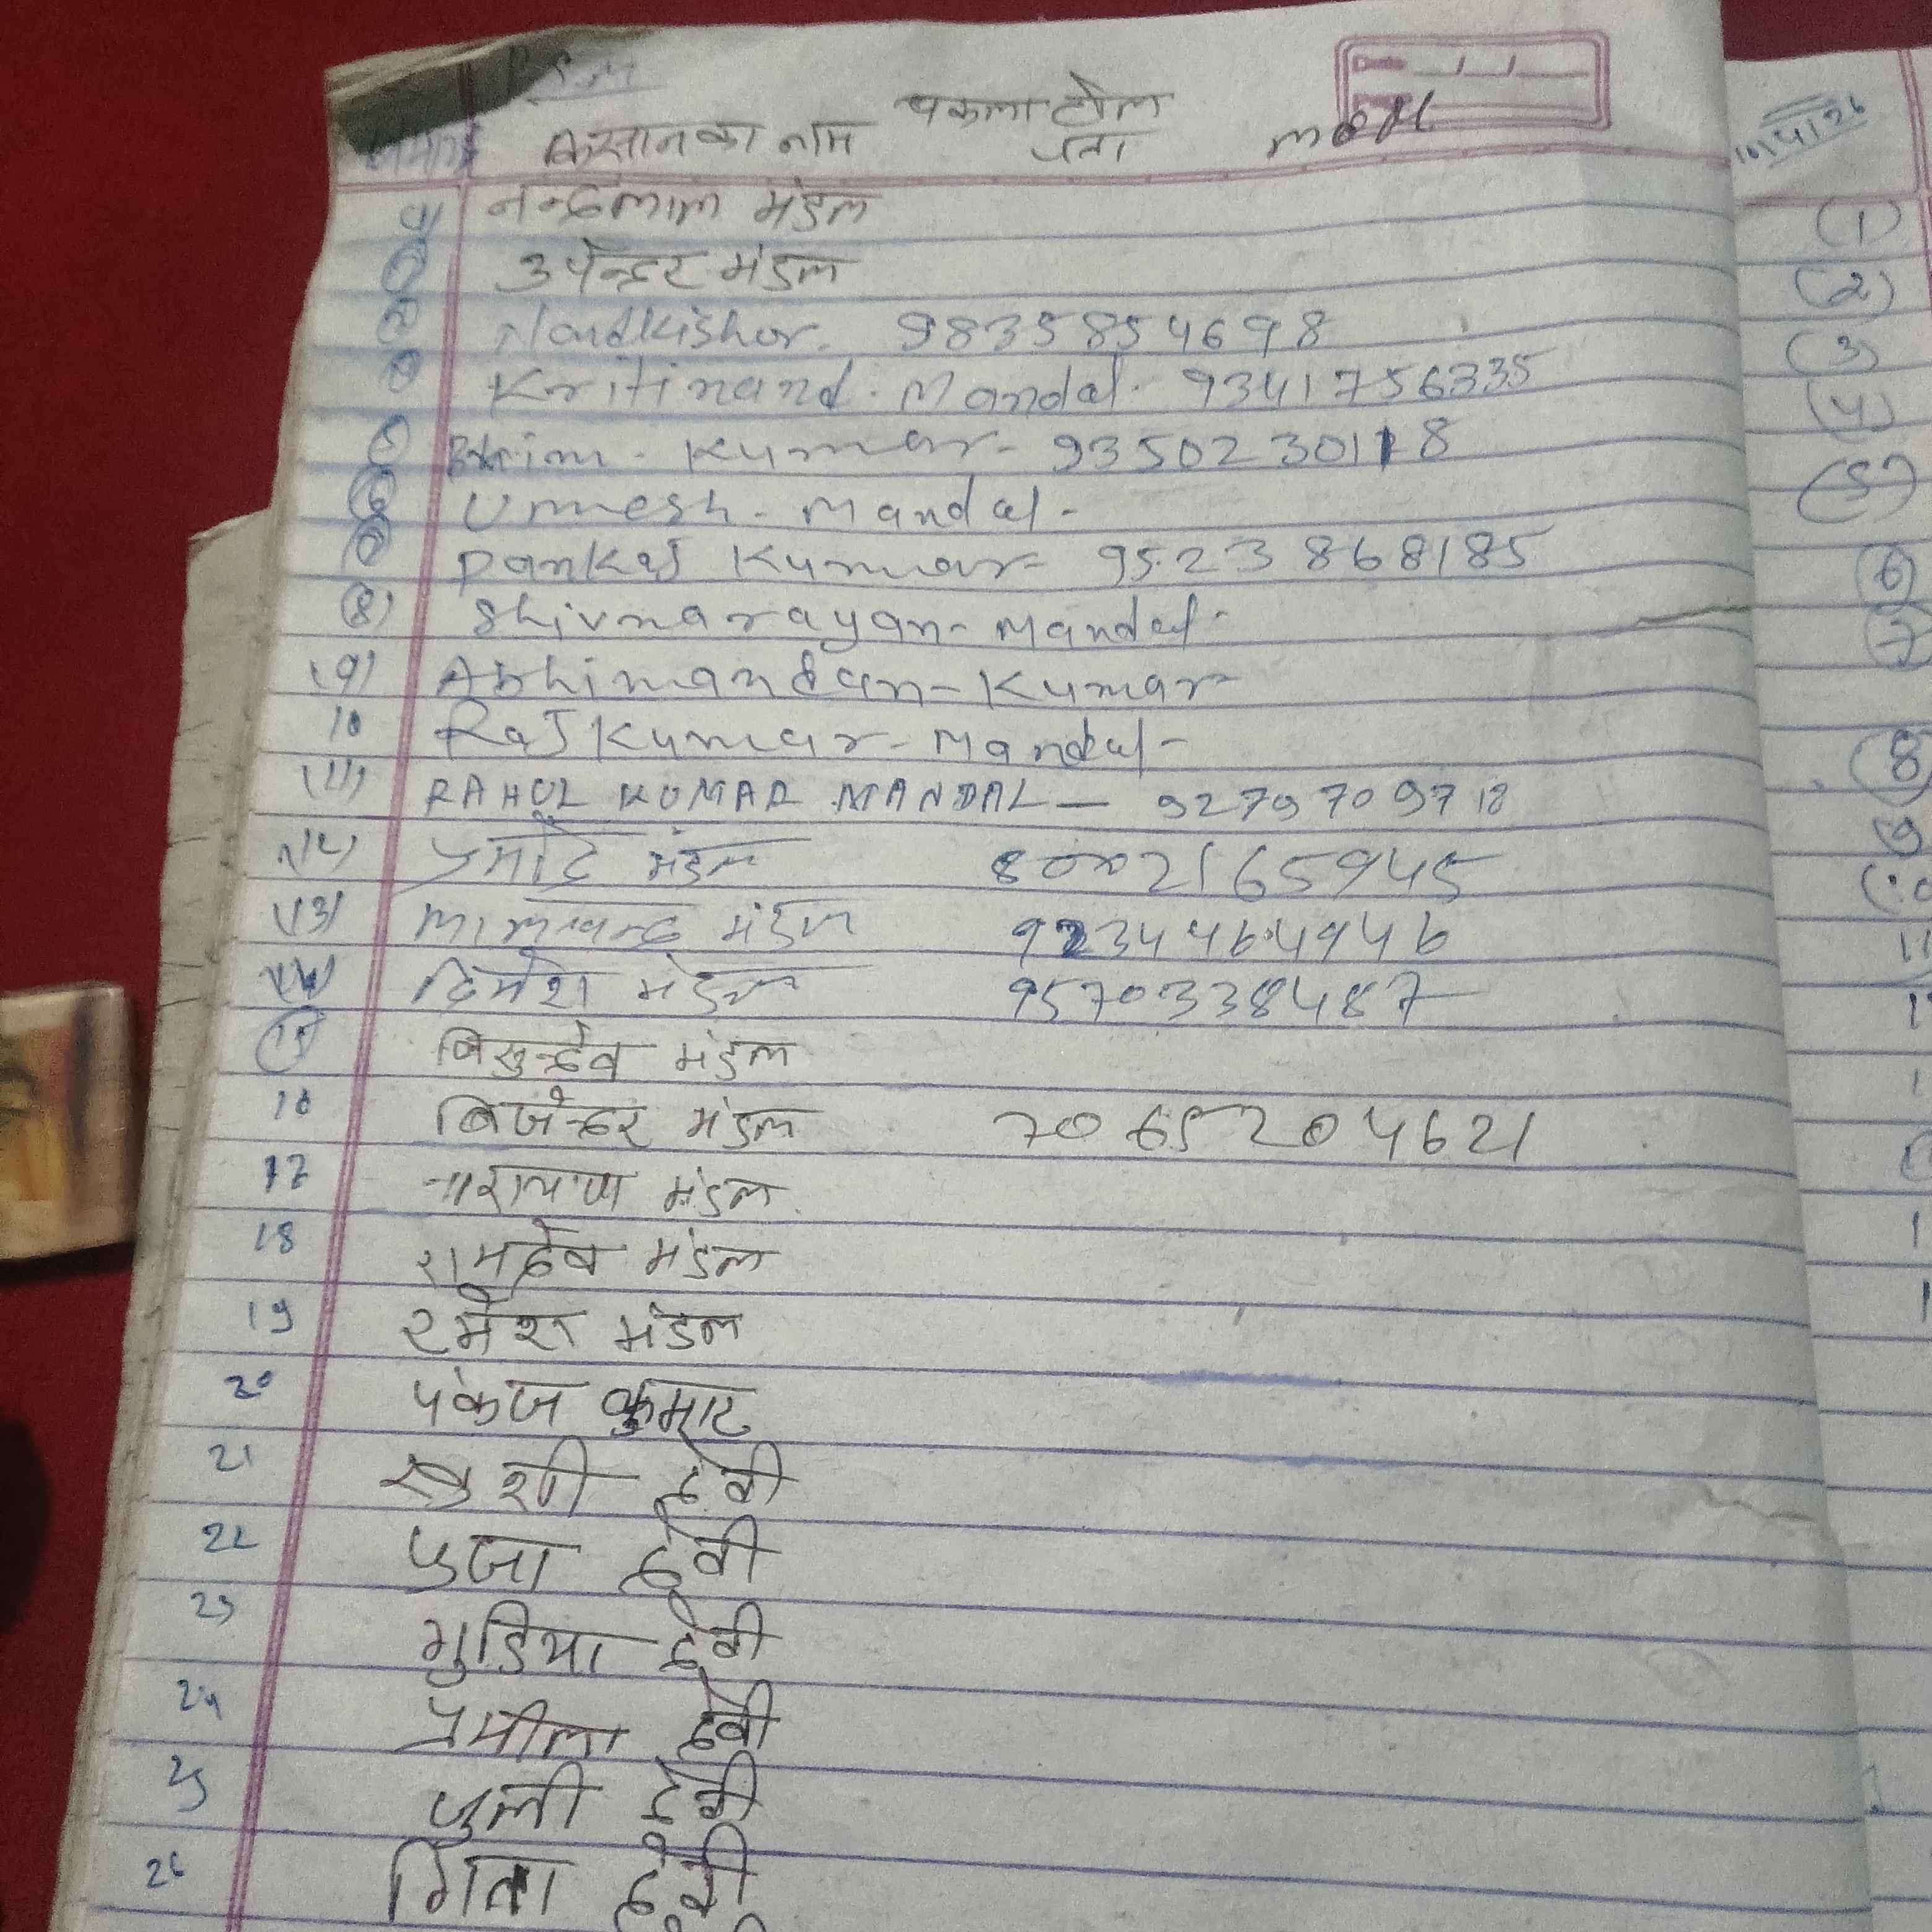 पकला टोल
क्रमांक किसान का नाम पता mobil
Date / /
10/4/26
(1) नन्दलाल मंडल
(2) उपेन्दर मंडल
(3) Nandkishor. 9835854698
(4) Kritinand. Mandal. 9341756335
(5) Bhim. Kumar- 9350230118
(6) Umesh. Mandal-
(7) Pankaj Kumar- 9523868185
(8) Shivnarayan- Mandal-
(9) Abhinandan- Kumar
10 Raj Kumar- Mandal-
(11) RAHUL KUMAR MANDAL — 9279709718
(12) प्रमोद मंडल
(13) मंडल
(14) दिनेश मंडल 9570338487
(15) बिसुन्देव मंडल
16 बिजेन्दर मंडल 7065204621
17 नारायण मंडल
18 रामदेव मंडल
19 रमेश मंडल
20 पंकज कुमार
21 खुशी देवी
22 पुजा देवी
23 गुडिया देवी
24 प्रमीला देवी
25 जुली देवी
26 गिता देवी
(1)
(2)
(3)
(4)
(5)
(6)
(7)
(8)
(9)
(10)
11